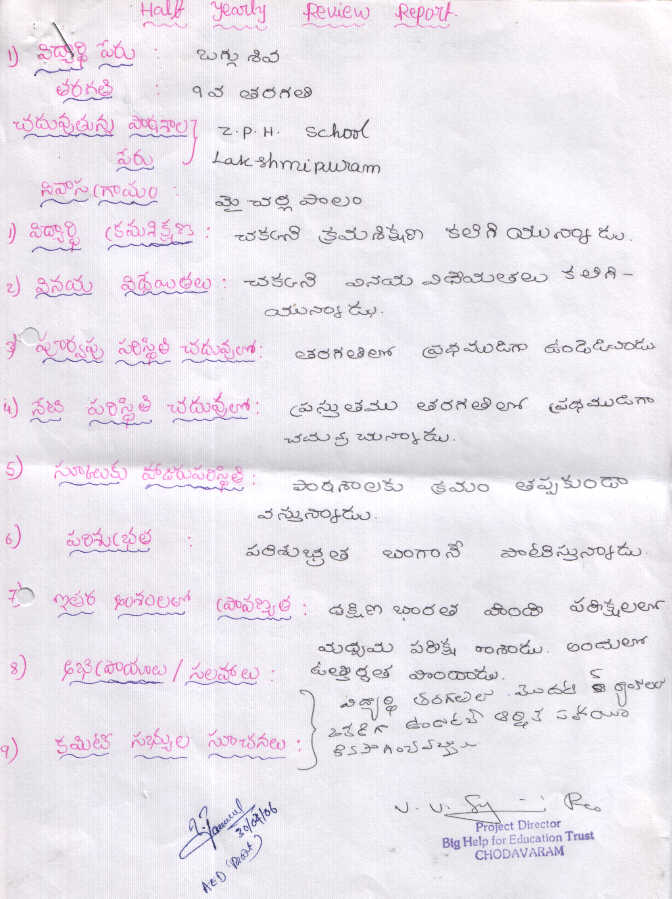 Half Yearly Review Report.
1) విద్యార్థి పేరు : బగ్గు శివ
తరగతి : 9వ తరగతి
చదువుతున్న పాఠశాల } Z.P.H. School
పేరు Lakshmipuram
నివాస గ్రామం : మైచర్ల పాలం
1) విద్యార్థి క్రమశిక్షణ : చక్కని క్రమశిక్షణ కలిగి యున్నాడు.
2) వినయ విధేయతలు : చక్కని వినయ విధేయతలు కలిగి-
యున్నాడు.
3) పూర్వపు పరిస్థితి చదువులో : తరగతిలో ప్రథముడిగా ఉండెడివాడు
4) నేటి పరిస్థితి చదువులో : ప్రస్తుతము తరగతిలో ప్రథముడిగా
చదువుచున్నాడు.
5) స్కూలుకు హాజరుపరిస్థితి : పాఠశాలకు క్రమం తప్పకుండా
వస్తున్నాడు.
6) పరిశుభ్రత : పరిశుభ్రత బాగానే పాటిస్తున్నాడు.
7) ఇతర అంశంలలో ప్రావీణ్యత : దక్షిణ భారత హిందీ పరీక్షలలో
మధ్యమ పరీక్ష రాశాడు. అందులో
8) అభిప్రాయాలు / సలహాలు : ఉత్తీర్ణత పొందాడు.
విద్యార్థి తరగతిలో మొదటి ర్యాంకులు
9) కమిటీ సభ్యుల సూచనలు : ఒకడిగా ఉండుటచే ఆర్థిక సహాయం
30/04/06
AEO
Project Director
Big Help for Education Trust
CHODAVARAM